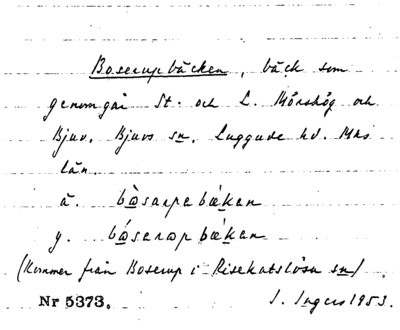 Boserupbäcken, bäck som
genomgår St. och L. Mörshög och
Bjuv. Bjuvs sn. Luggude hd. Mhs
län.
ä. bòsarpabǽkan
y. bósarəp bǽkan
(Kommer från Boserup i Risekatslösa sn).
Nr 5373. I. Ingers 1953.